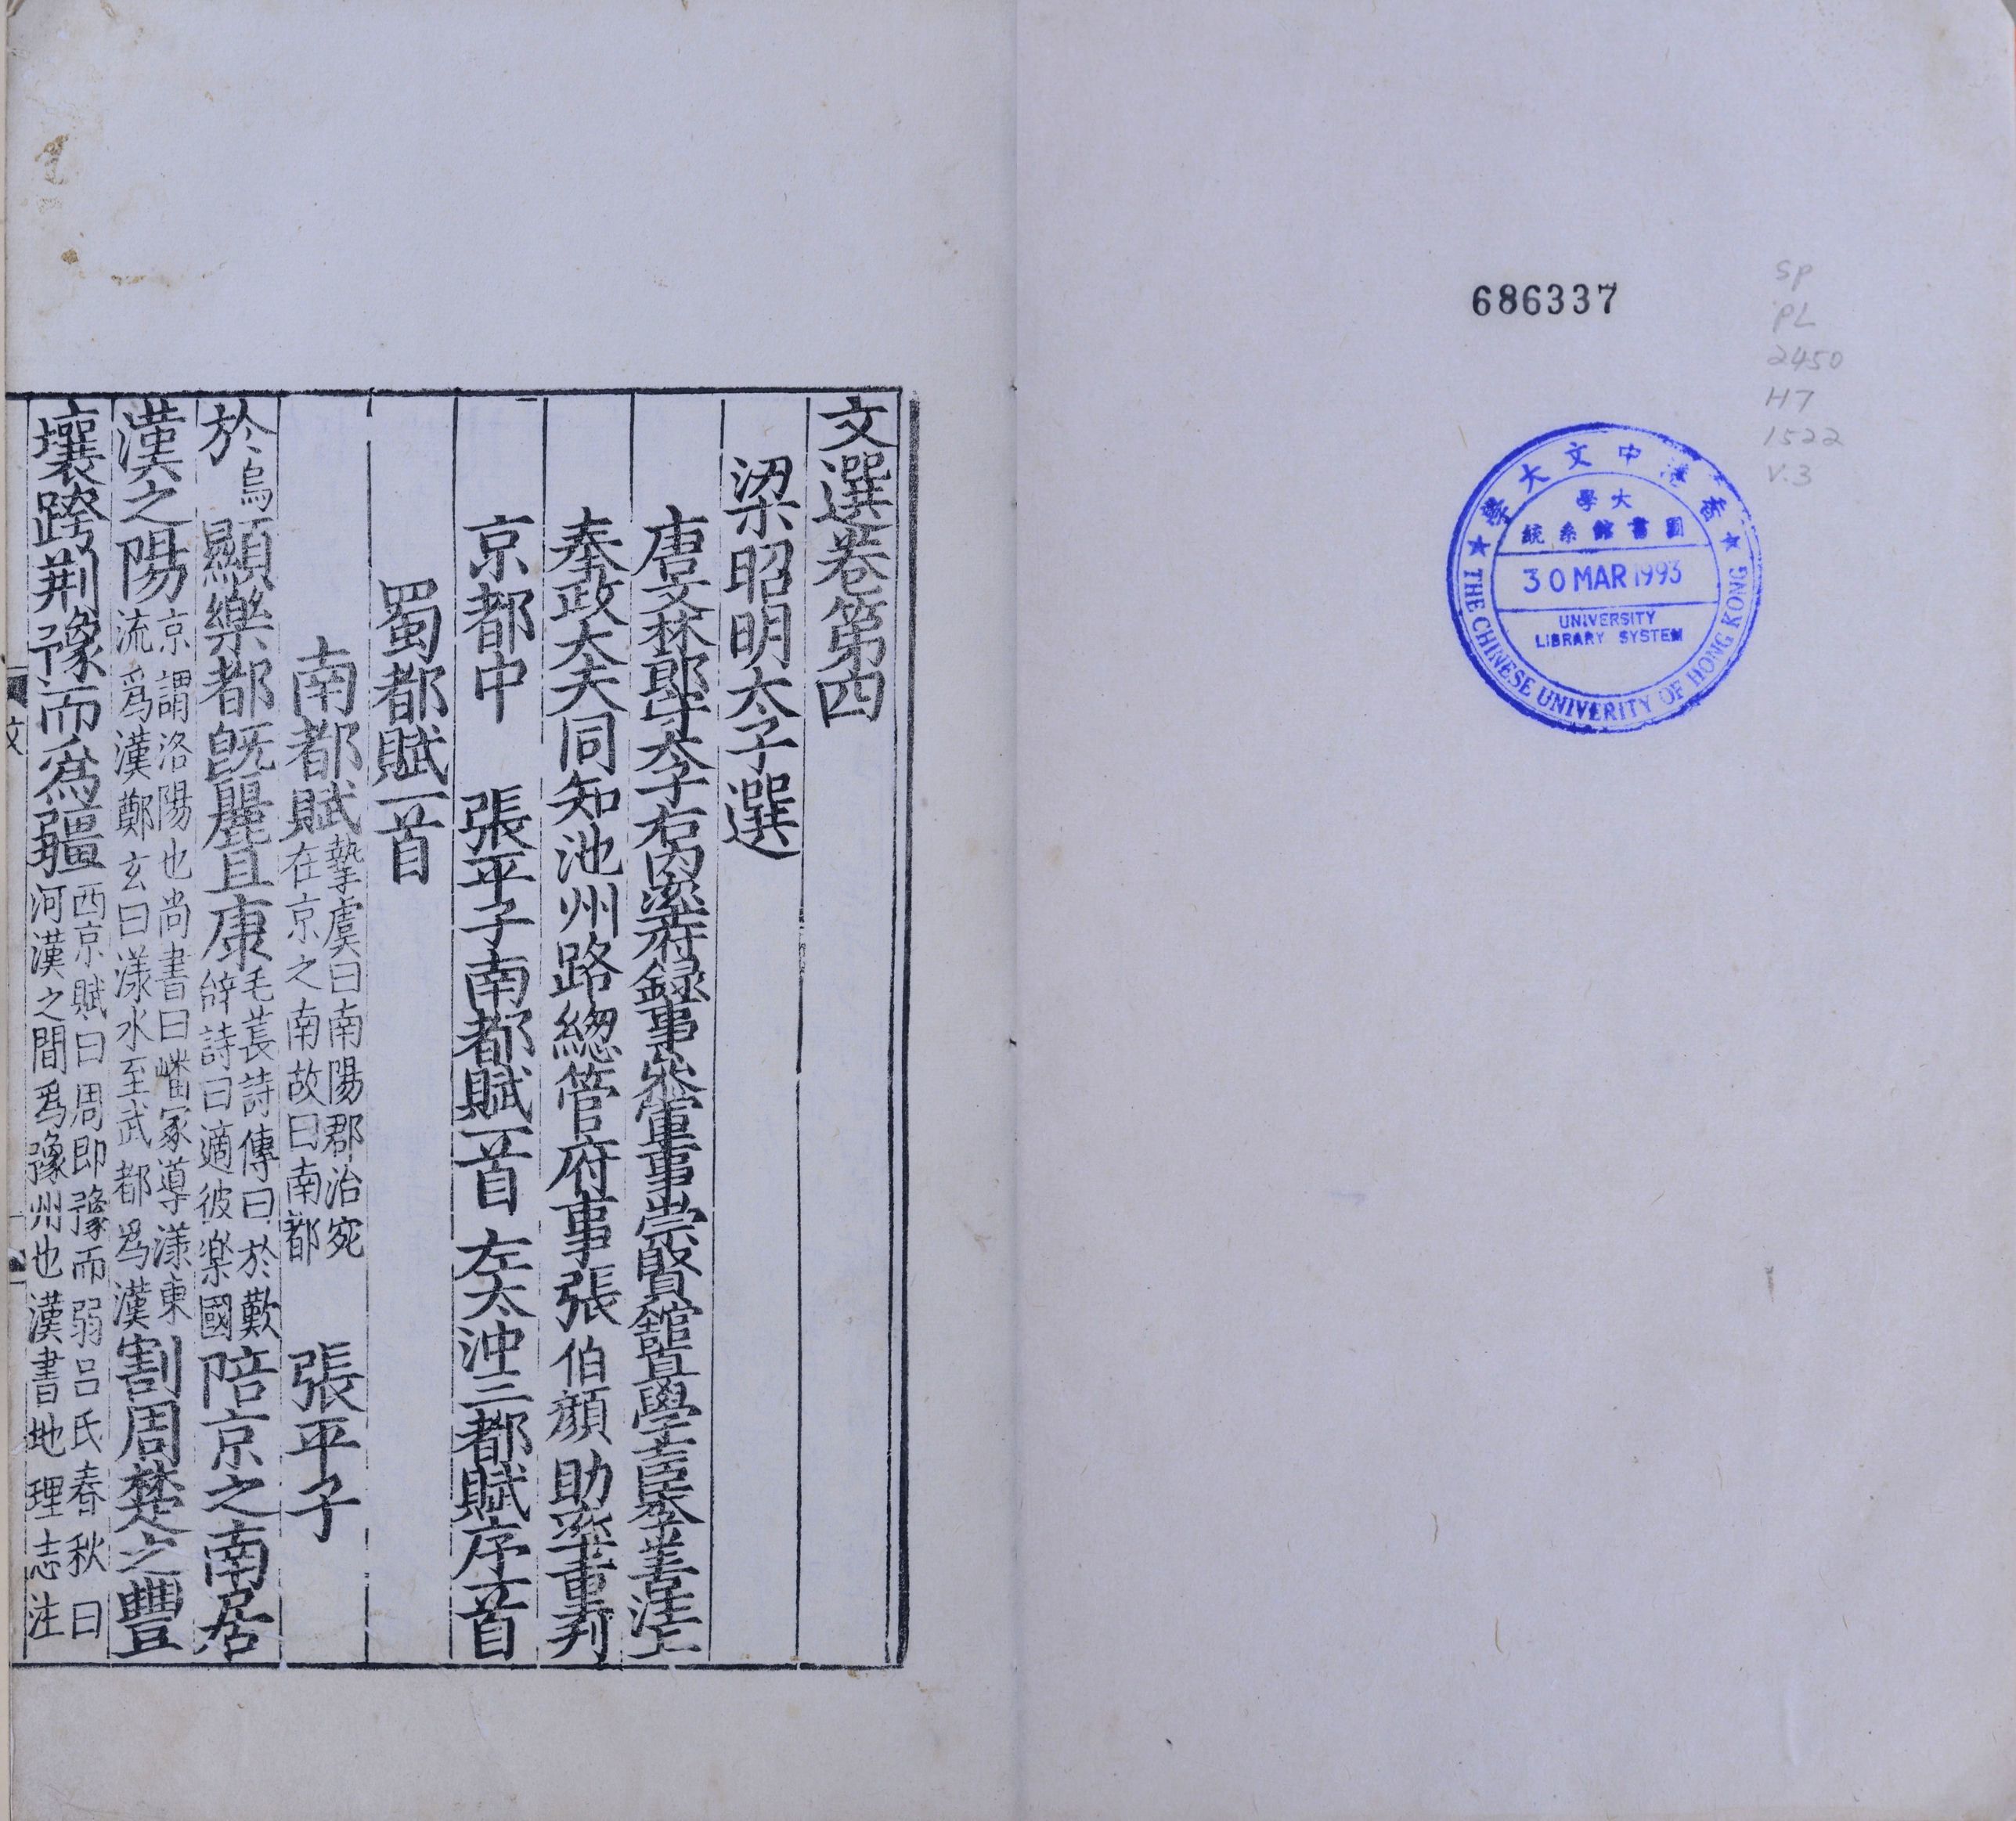 文選卷第四
梁昭明太子選
唐文林郎守太子右内率府録事參軍事崇賢館直學士臣李善注上
奉政大夫同知池州路總管府事張伯顔助率重刋
京都中　張平子南都賦一首　左太沖三都賦序一首
蜀都賦一首
南都賦摯虞曰南陽郡治宛在京之南故曰南都　張平子
於烏顯樂都旣麗且康毛萇詩傳曰於歎辭詩曰適彼樂國陪京之南居
漢之陽京謂洛陽也尚書曰嶓冢導漾東流爲漢鄭玄曰漾水至武都爲漢割周楚之豐
壤跨荆豫而爲疆西京賦曰周即豫而弱吕氏春秋曰河漢之間爲豫州也漢書地理志注
文
686337
SP
PL
2450
H7
1522
V.3
香港中文大學
大學
圖書館系統
30 MAR 1993
UNIVERSITY
LIBRARY SYSTEM
THE CHINESE UNIVERITY OF HONG KONG